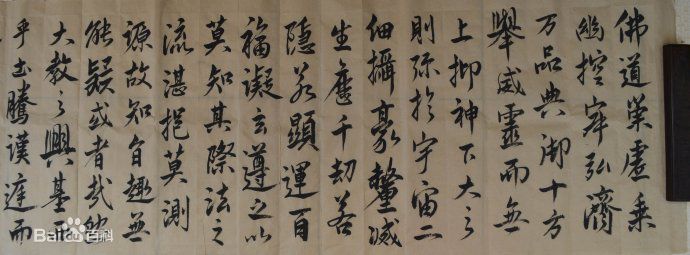 佛道崇虛乘
幽控寂弘濟
万品典御十方
舉威靈而無
上抑神下大之
則彌於宇宙
細攝豪釐滅
生歷千劫若
隱若顯運百
福凝玄遵之以
莫知其際法之
流湛挹莫測
源故知旨趣無
能疑或者哉然
大教之興基
乎土騰漢庭而
Baidu百科